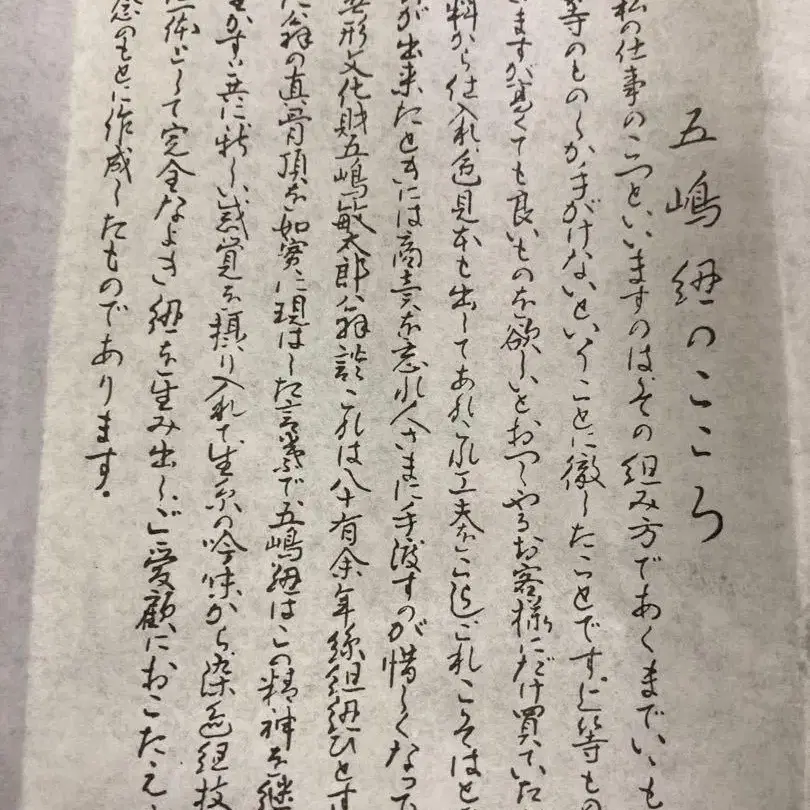 五嶋紐のこころ
私の仕事の二つといいますのは、その組み方であくまでいゝも
等のものしか手がけないということに徹したことです。上等もの
いますが高くても良いものを欲しいとおっしゃるお客様にだけ買っていた
料から仕入れ、色見本も出してあれこれ工夫をこらしこれこそはと
が出来たときには商売を忘れ人さまに手渡すのが惜しくなって
無形文化財五嶋敏太郎翁談 これは八十有余年絲組紐ひとす
た翁の真骨頂を如実に現はした言葉で五嶋紐はこの精神を継
生かすと共に新しい感覚を採り入れて生糸の吟味から染色組技
一体として完全なよき紐を生み出し、ご愛顧におこたえ
念のもとに作成したものであります。